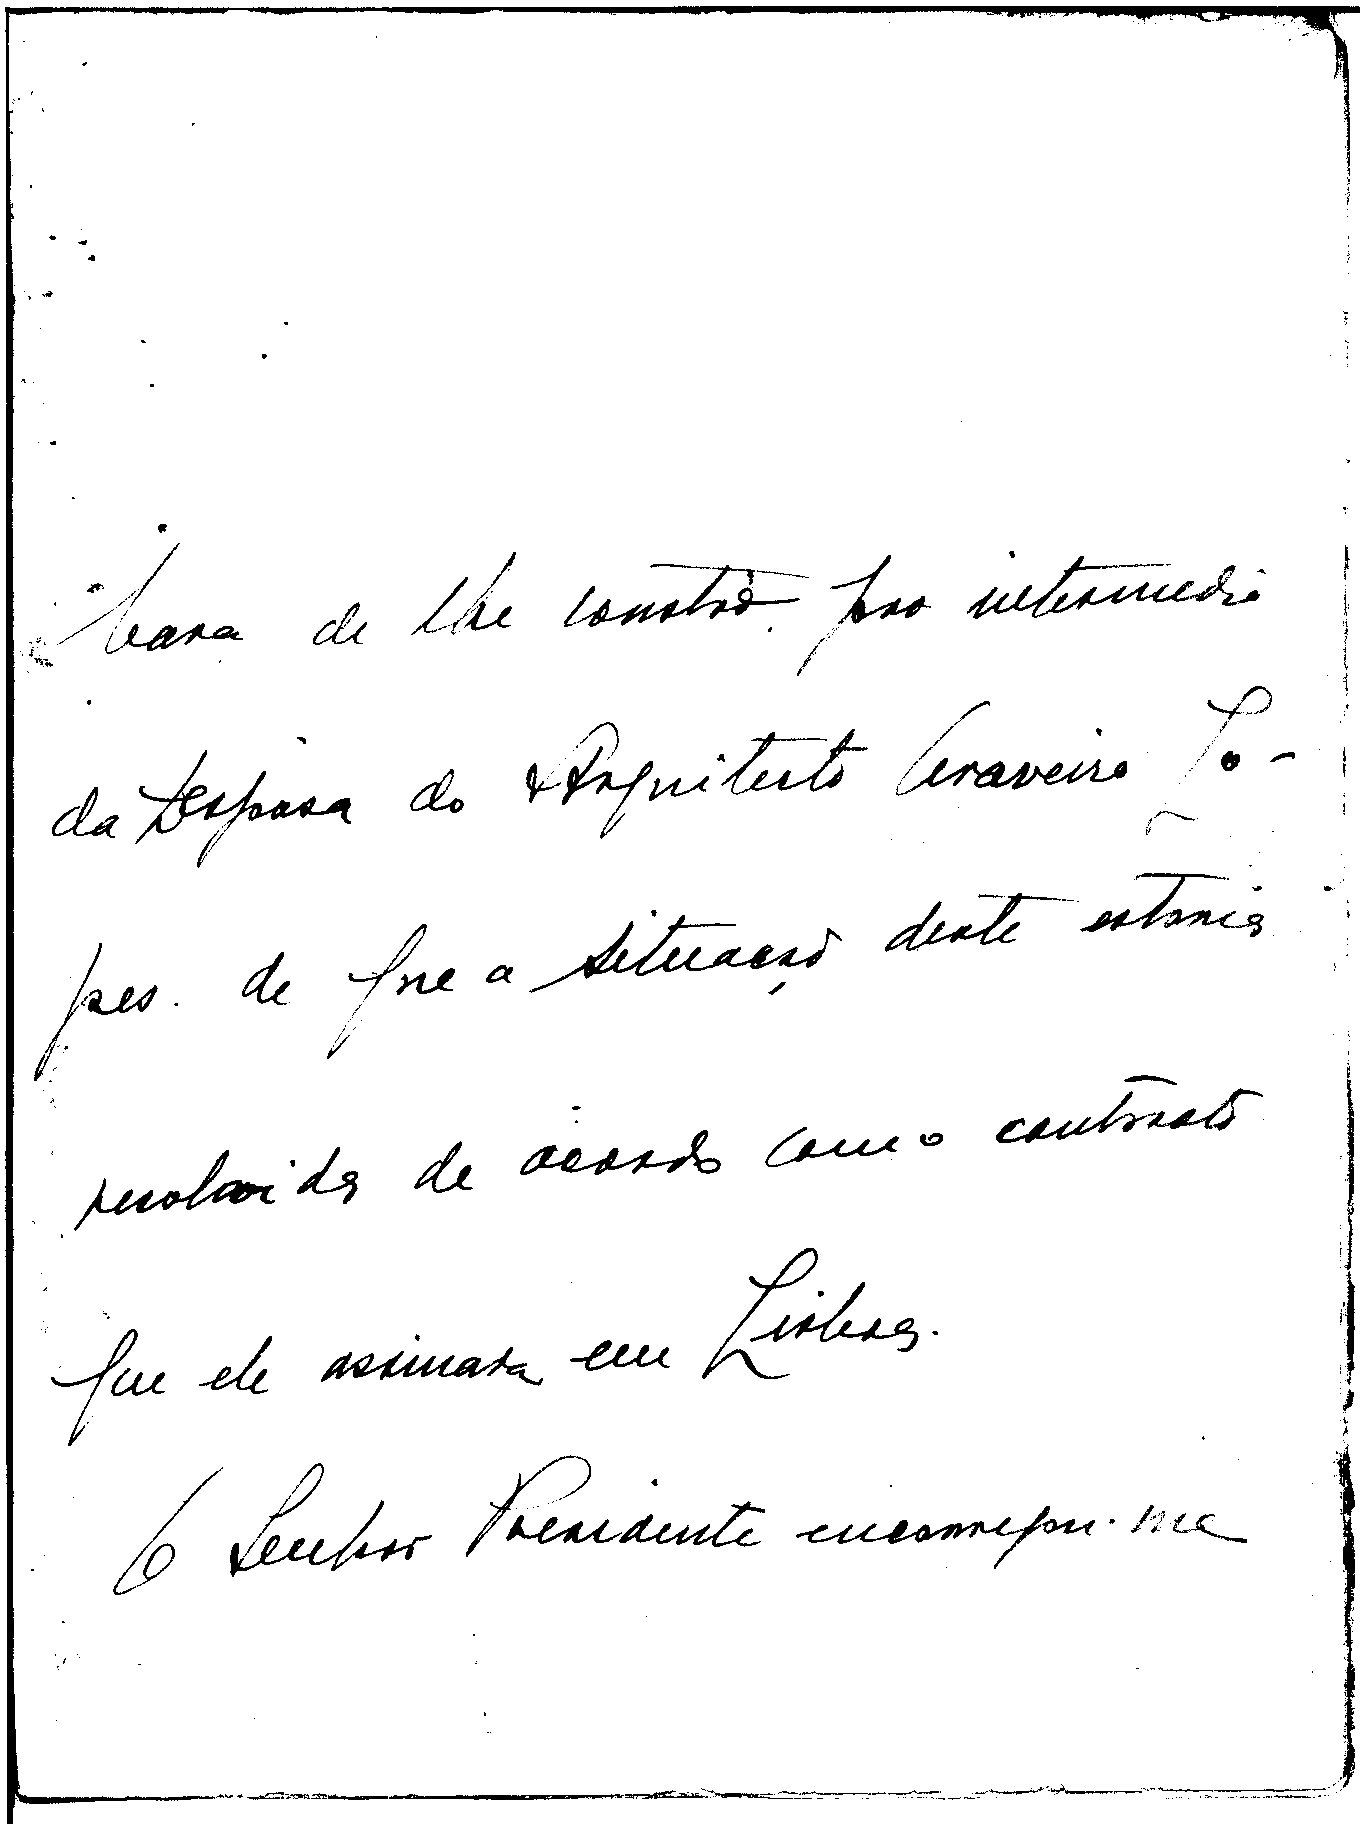 bara de lhe constar por intermedio
da Esposa do Arquitecto Craveiro Lo-
pes. de que a situação deste estaria
resolvida de acordo com o contrato
que ele assinara em Lisboa.
O Senhor Presidente encarregou-me